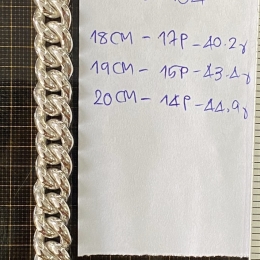 18CM - 17P - 40.2g
19CM - 15P - 43.4g
20CM - 14P - 44.9g